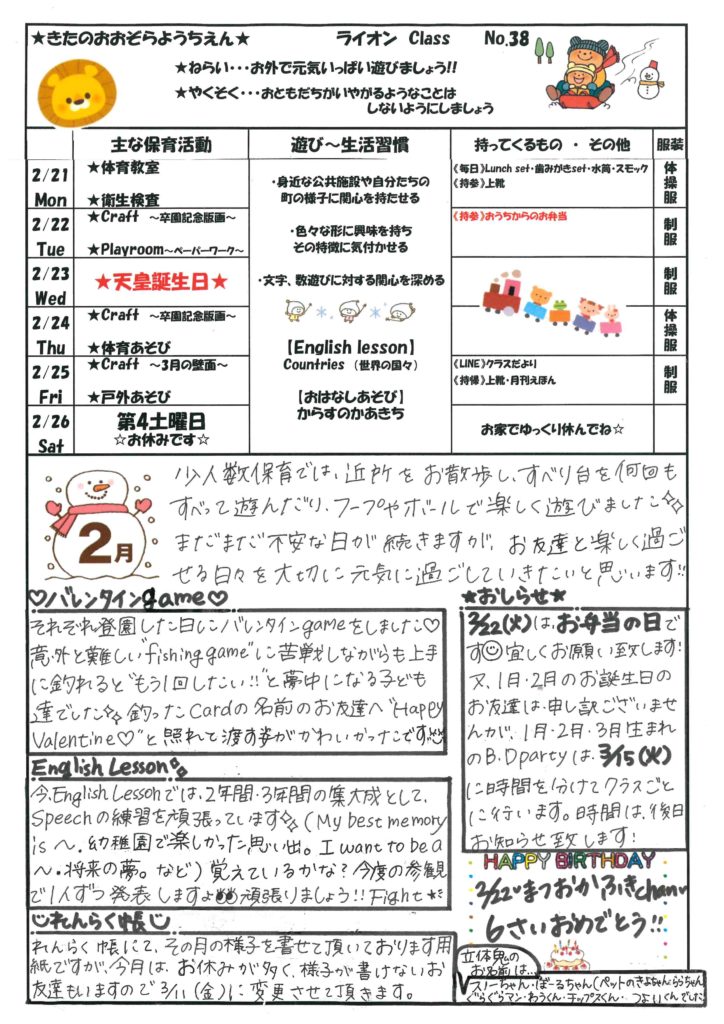 ★きたのおおぞらようちえん★ ライオン Class No.38
★ねらい・・・お外で元気いっぱい遊びましょう!!
★やくそく・・・おともだちがいやがるようなことは
しないようにしましょう
主な保育活動 遊び～生活習慣 持ってくるもの ・ その他 服装
2/21 Mon
★体育教室
★衛生検査
《毎日》Lunch set・歯みがきset・水筒・スモック
《持参》上靴
体操服
2/22 Tue
★Craft ～卒園記念版画～
★Playroom～ペーパーワーク～
《持参》おうちからのお弁当
制服
2/23 Wed
★天皇誕生日★
制服
2/24 Thu
★Craft ～卒園記念版画～
★体育あそび
体操服
2/25 Fri
★Craft ～3月の壁面～
★戸外あそび
《LINE》クラスだより
《持帰》上靴・月刊えほん
制服
2/26 Sat
第4土曜日
☆お休みです☆
お家でゆっくり休んでね☆
・身近な公共施設や自分たちの
町の様子に関心を持たせる
・色々な形に興味を持ち
その特徴に気付かせる
・文字、数遊びに対する関心を深める
【English lesson】
Countries （世界の国々）
【おはなしあそび】
からすのかあきち
2月
少人数保育では、近所をお散歩し、すべり台を何回も
すべって遊んだり、フープやボールで楽しく遊びました✧
まだまだ不安な日が続きますが、お友達と楽しく過ご
せる日々を大切に元気に過ごしていきたいと思います!!
♡バレンタインgame♡
それぞれ登園した日にバレンタインgameをしました♡
意外と難しい"fishing game"に苦戦しながらも上手
に釣れると"もう1回したい!!"と夢中になる子ども
達でした✧釣ったCardの名前のお友達へ"Happy
Valentine♡"と照れて渡す姿がかわいかったです
English Lesson✧
今、English Lessonでは、2年間・3年間の集大成として、
Speechの練習を頑張っています✧(My best memory
is ～. 幼稚園で楽しかった思い出。I want to be a
～. 将来の夢。など) 覚えているかな?今度の参観
で1人ずつ発表しますよ 頑張りましょう!! Fight★
れんらく帳
れんらく帳にて、その月の様子を書せて頂いております用
紙ですが、今月は、お休みが多く、様子が書けないお
友達もいますので3/11(金)に変更させて頂きます。
★おしらせ★
3/22(火)は、お弁当の日で
す☺宜しくお願い致します!
又、1月・2月のお誕生日の
お友達は、申し訳ございませ
んが、1月・2月・3月生まれ
のB.Dpartyは、3/15(火)
に時間を分けてクラスごと
に行います。時間は、後日
お知らせ致します!
HAPPY BIRTHDAY
2/22・まつおかふきchan
6さいおめでとう!!
立体鬼の
お名前は…
スノーちゃん・ぼーるちゃん(ペットのきよちゃん・ららちゃん)
ぐらぐらマン・わうくん・チップスくん・つよいくんでした